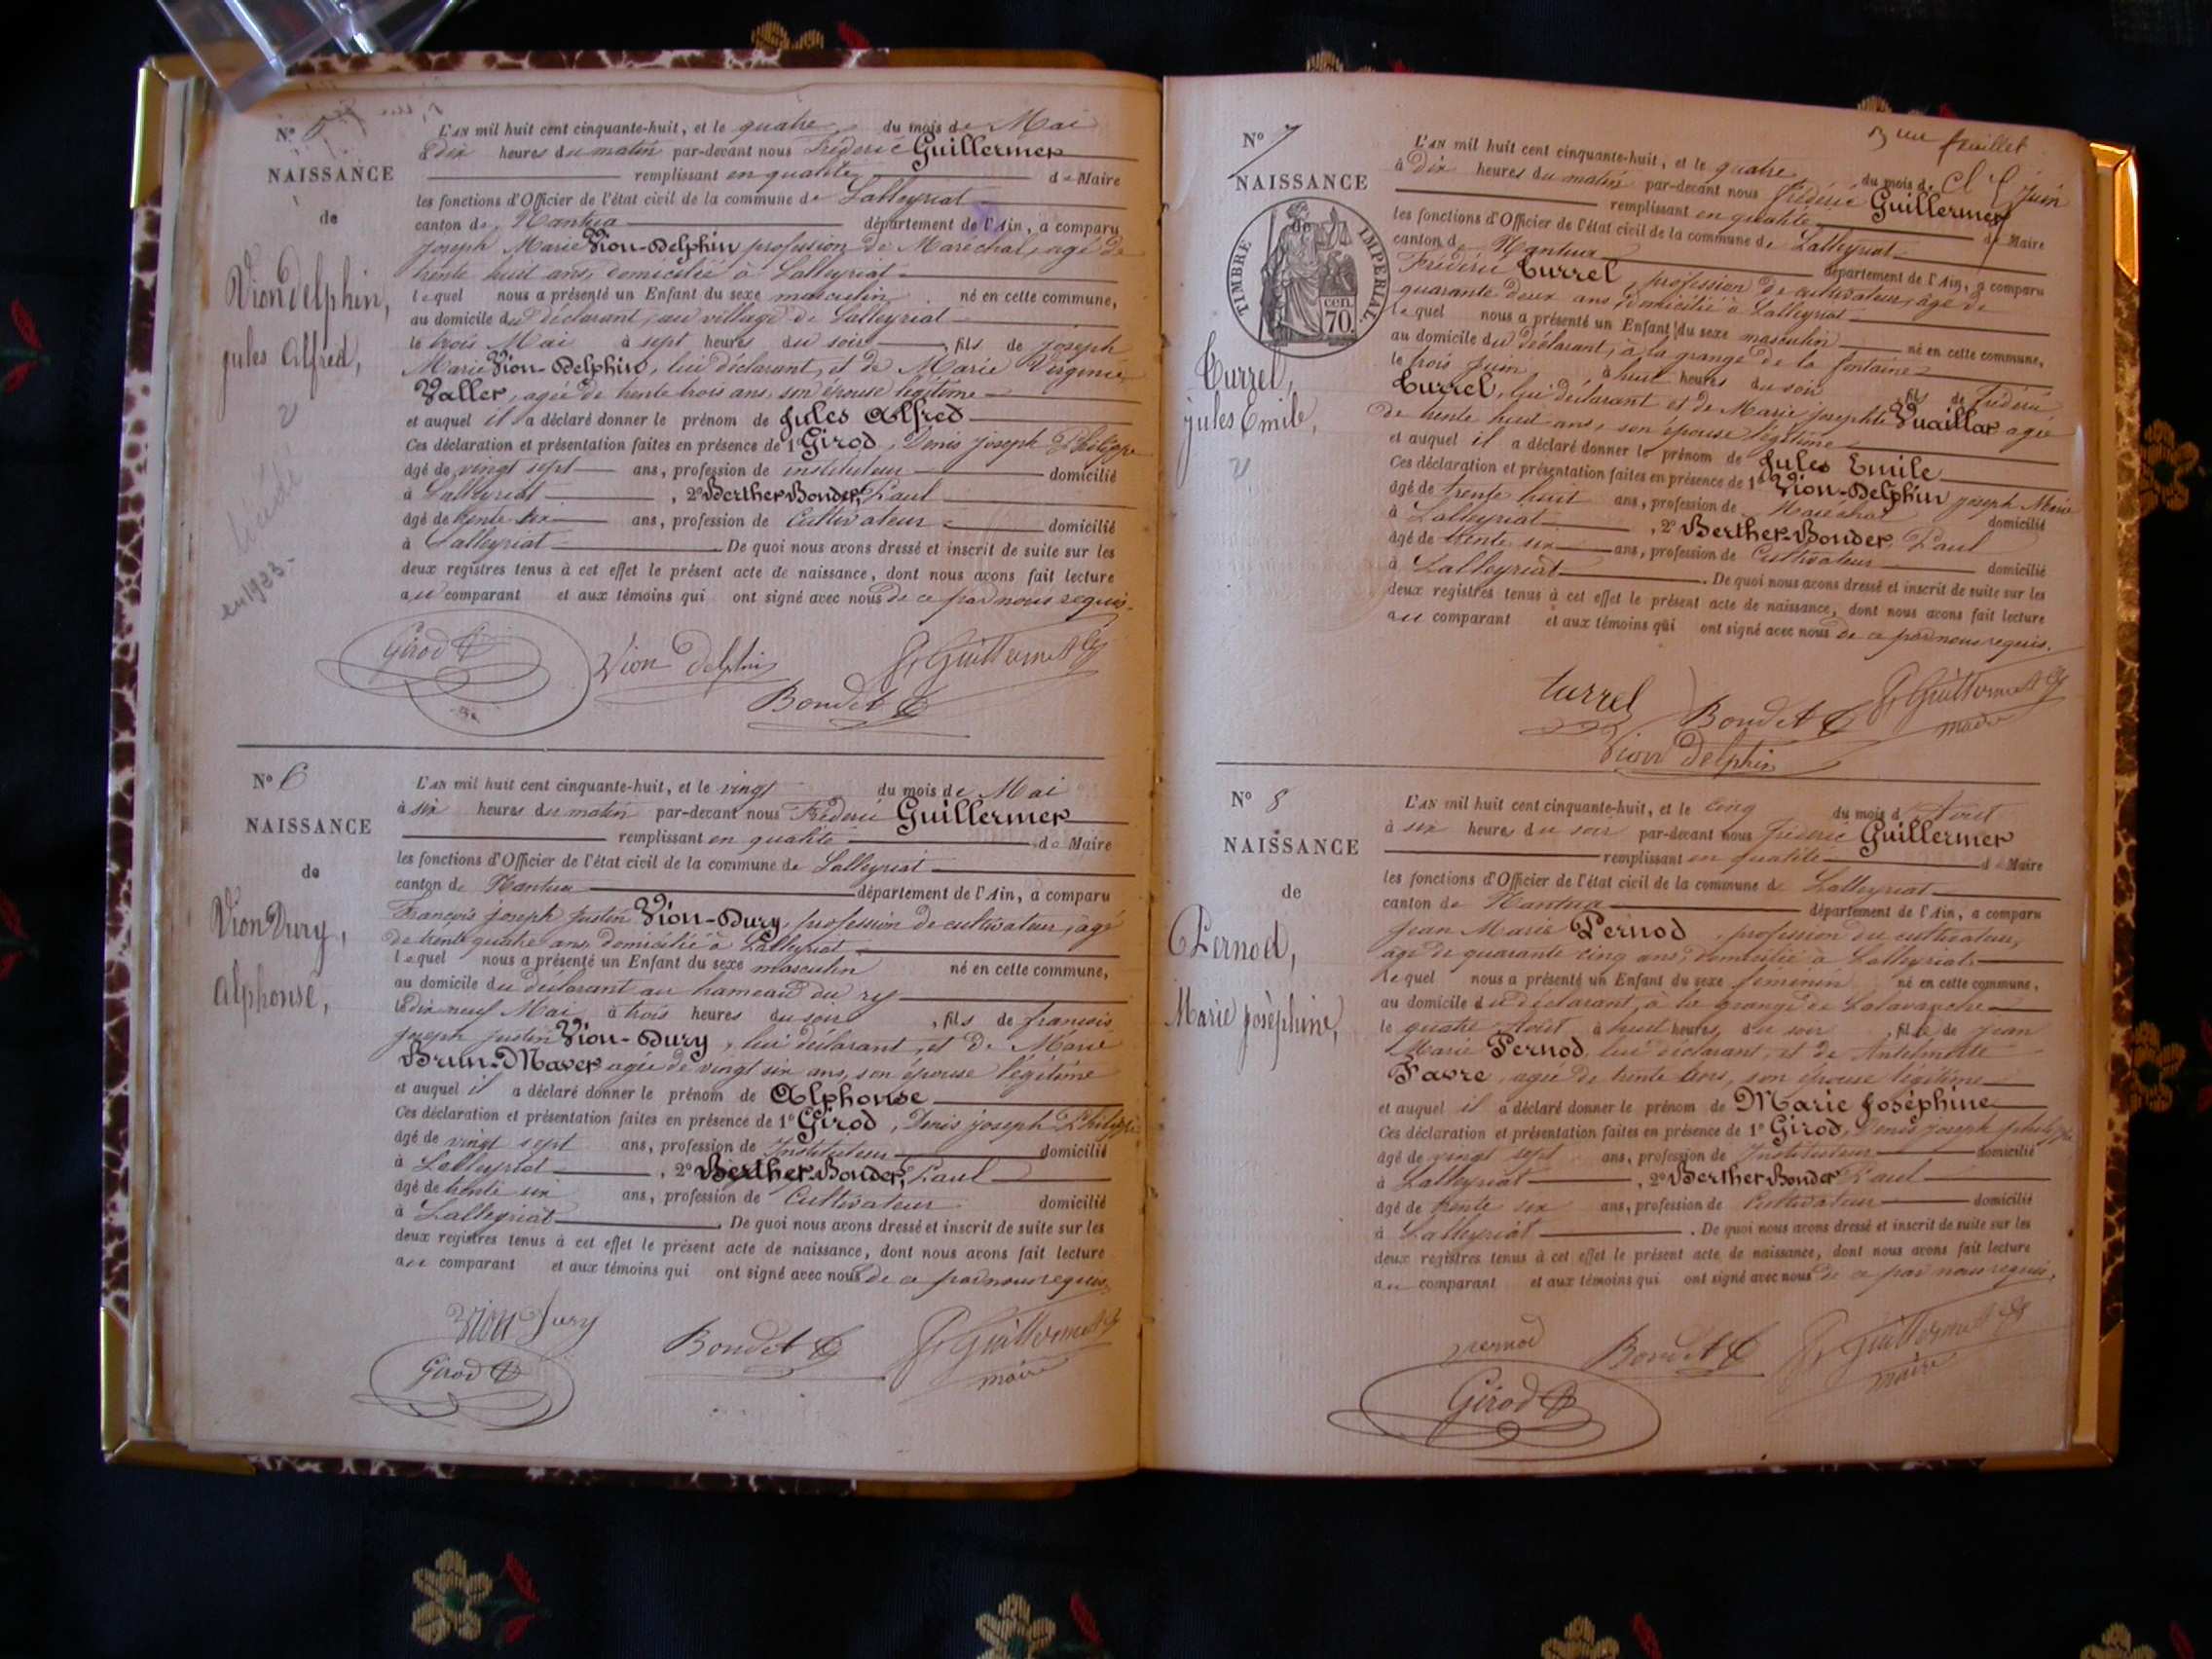 N° 5
NAISSANCE
de
Vion delphin,
jules Alfred,
décédé
en 1933.
L'AN mil huit cent cinquante-huit, et le quatre du mois de Mai
à dix heures du matin par-devant nous Frédéric Guillermet
remplissant en qualité de Maire
les fonctions d'Officier de l'état civil de la commune de Lalleyriat
canton de Nantua département de l'Ain, a comparu
joseph Marie Vion-Delphin, profession de Maréchal, agé de
trente huit ans, domicilié à Lalleyriat
lequel nous a présenté un Enfant du sexe masculin né en cette commune,
au domicile du déclarant, au village de Lalleyriat
le trois Mai à sept heures du soir, fils de joseph
Marie Vion-Delphin, lui déclarant, et de Marie Virginie
Vallet, agée de trente trois ans, son épouse légitime
et auquel il a déclaré donner le prénom de Jules Alfred
Ces déclaration et présentation faites en présence de 1° Girod, Denis joseph Philippe
âgé de vingt sept ans, profession de instituteur domicilié
à Lalleyriat, 2° Berthet-Bondet, Paul
âgé de trente six ans, profession de Cultivateur domicilié
à Lalleyriat. De quoi nous avons dressé et inscrit de suite sur les
deux registres tenus à cet effet le présent acte de naissance, dont nous avons fait lecture
au comparant et aux témoins qui ont signé avec nous de ce par nous requis.
Girod
Vion delphin
Guillermet
Bondet
N° 6
NAISSANCE
de
Vion Dury,
alphonse,
L'AN mil huit cent cinquante-huit, et le vingt du mois de Mai
à six heures du matin par-devant nous Frédéric Guillermet
remplissant en qualité de Maire
les fonctions d'Officier de l'état civil de la commune de Lalleyriat
canton de Nantua département de l'Ain, a comparu
François joseph justin Vion-Dury, profession de cultivateur, agé
de trente quatre ans, domicilié à Lalleyriat
lequel nous a présenté un Enfant du sexe masculin né en cette commune,
au domicile du déclarant au hameau du rey
le dix neuf Mai à trois heures du soir, fils de françois
joseph justin Vion-Dury, lui déclarant, et de Marie
Brun-Mavet agée de vingt six ans, son épouse légitime
et auquel il a déclaré donner le prénom de Alphonse
Ces déclaration et présentation faites en présence de 1° Girod, Denis joseph Philippe
âgé de vingt sept ans, profession de Instituteur domicilié
à Lalleyriat, 2° Berthet-Bondet, Paul
âgé de trente six ans, profession de Cultivateur domicilié
à Lalleyriat. De quoi nous avons dressé et inscrit de suite sur les
deux registres tenus à cet effet le présent acte de naissance, dont nous avons fait lecture
au comparant et aux témoins qui ont signé avec nous de ce par nous requis.
Vion Dury
Bondet
Guillermet
maire
Girod
feuillet
N° 7
NAISSANCE
de
TIMBRE IMPERIAL
cen. 70.
Turrel,
jules Emile,
L'AN mil huit cent cinquante-huit, et le quatre du mois de Juin
à dix heures du matin par-devant nous Frédéric Guillermet
remplissant en qualité de Maire
les fonctions d'Officier de l'état civil de la commune de Lalleyriat
canton de Nantua département de l'Ain, a comparu
Frédéric Turrel, profession de cultivateur, agé de
quarante deux ans, domicilié à Lalleyriat
lequel nous a présenté un Enfant du sexe masculin né en cette commune,
au domicile du déclarant, à la grange de la fontaine
le trois juin, à huit heures du soir fils de Frédéric
Turrel, lui déclarant et de Marie josephte Vuaillat agée
de trente huit ans, son épouse légitime
et auquel il a déclaré donner le prénom de Jules Emile
Ces déclaration et présentation faites en présence de 1° Vion-Delphin joseph Marie
âgé de trente huit ans, profession de Maréchal domicilié
à Lalleyriat, 2° Berthet-Bondet, Paul
âgé de trente six ans, profession de Cultivateur domicilié
à Lalleyriat. De quoi nous avons dressé et inscrit de suite sur les
deux registres tenus à cet effet le présent acte de naissance, dont nous avons fait lecture
au comparant et aux témoins qui ont signé avec nous de ce par nous requis.
turrel
Bondet
Guillermet
maire
Vion delphin
N° 8
NAISSANCE
de
Pernod,
Marie josèphine,
L'AN mil huit cent cinquante-huit, et le cinq du mois d'Aout
à six heures du soir par-devant nous frédéric Guillermet
remplissant en qualité de Maire
les fonctions d'Officier de l'état civil de la commune de Lalleyriat
canton de Nantua département de l'Ain, a comparu
Jean Marie Pernod, profession de cultivateur,
agé de quarante cinq ans, domicilié à Lalleyriat
lequel nous a présenté un Enfant du sexe féminin né en cette commune,
au domicile du déclarant, à la grange de Lalavanche
le quatre Aout à huit heures du soir, fille de Jean
Marie Pernod, lui déclarant, et de Anthelmette
Favre, agée de trente ans, son épouse légitime
et auquel il a déclaré donner le prénom de Marie Joséphine
Ces déclaration et présentation faites en présence de 1° Girod, Denis joseph philippe
âgé de vingt sept ans, profession de Instituteur domicilié
à Lalleyriat, 2° Berthet-Bondet Paul
âgé de trente six ans, profession de Cultivateur domicilié
à Lalleyriat. De quoi nous avons dressé et inscrit de suite sur les
deux registres tenus à cet effet le présent acte de naissance, dont nous avons fait lecture
au comparant et aux témoins qui ont signé avec nous de ce par nous requis.
pernod
Bondet
Guillermet
maire
Girod